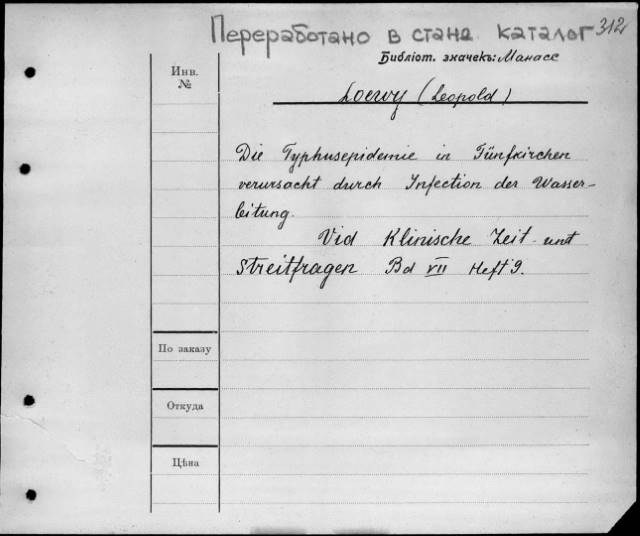 Переработано в стана. каталог 312
Библіот. значекъ: Манасс
Инв.
№
Loewy (Leopold)
Die Typhusepidemie in Fünfkirchen
verursacht durch Infection der Wasser-
leitung.
Vid Klinische Zeit- und
Streitfragen Bd VII Heft 9.
По заказу
Откуда
Цѣна